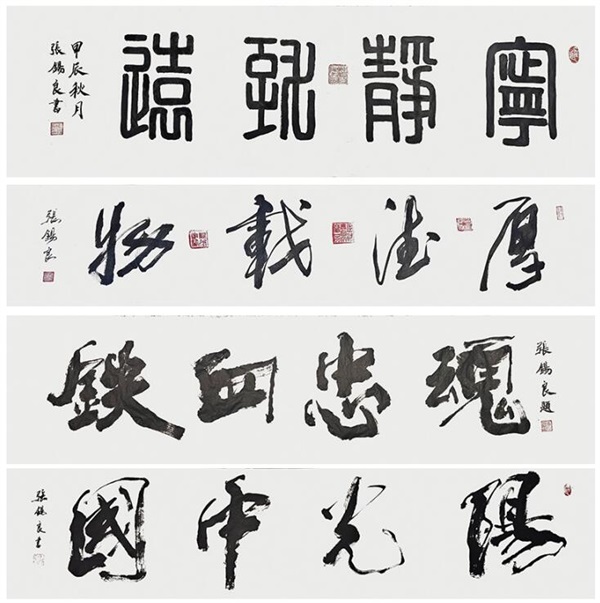 寧靜致遠
甲辰秋月
張錫良書
厚德載物
張錫良
鉄血忠魂
張錫良題
陽光中國
張錫良書